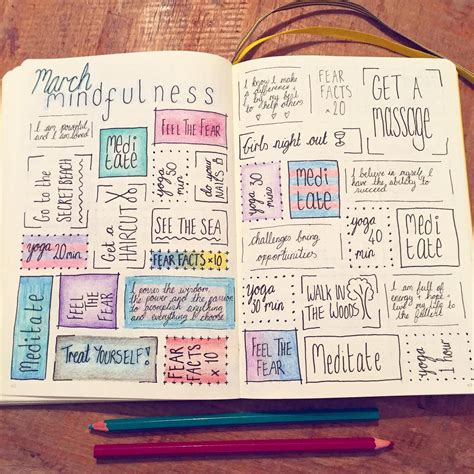 March
mindfulness
I am powerful
and I am loved
Medi
tate
FEEL THE FEAR
Go to the
SECRET BEACH
Get a
HAIRCUT
yoga 30
min
do your
NAILS
SEE THE SEA
yoga 20 min
FEAR FACTS x10
Meditate
FEEL
THE
FEAR
I posses the wisdom,
the power and the passion
to accomplish anything
and everything I choose
Treat YOURSELF!
FEAR
FACTS
x 10
I know I make
a difference
by my best
to help others
FEAR
FACTS
x20
GET A
MASSAGE
Girls night out
yoga 30
min
MEDI
TATE
I believe in myself, I
have the ability to
succeed
challenges bring
opportunities
yoga
40
min
Medi
tate
yoga
30 min
WALK IN
THE
WOODS
I am full of
energy + hope
live my life to
the fullest
FEEL THE
FEAR
Meditate
yoga
1 hour